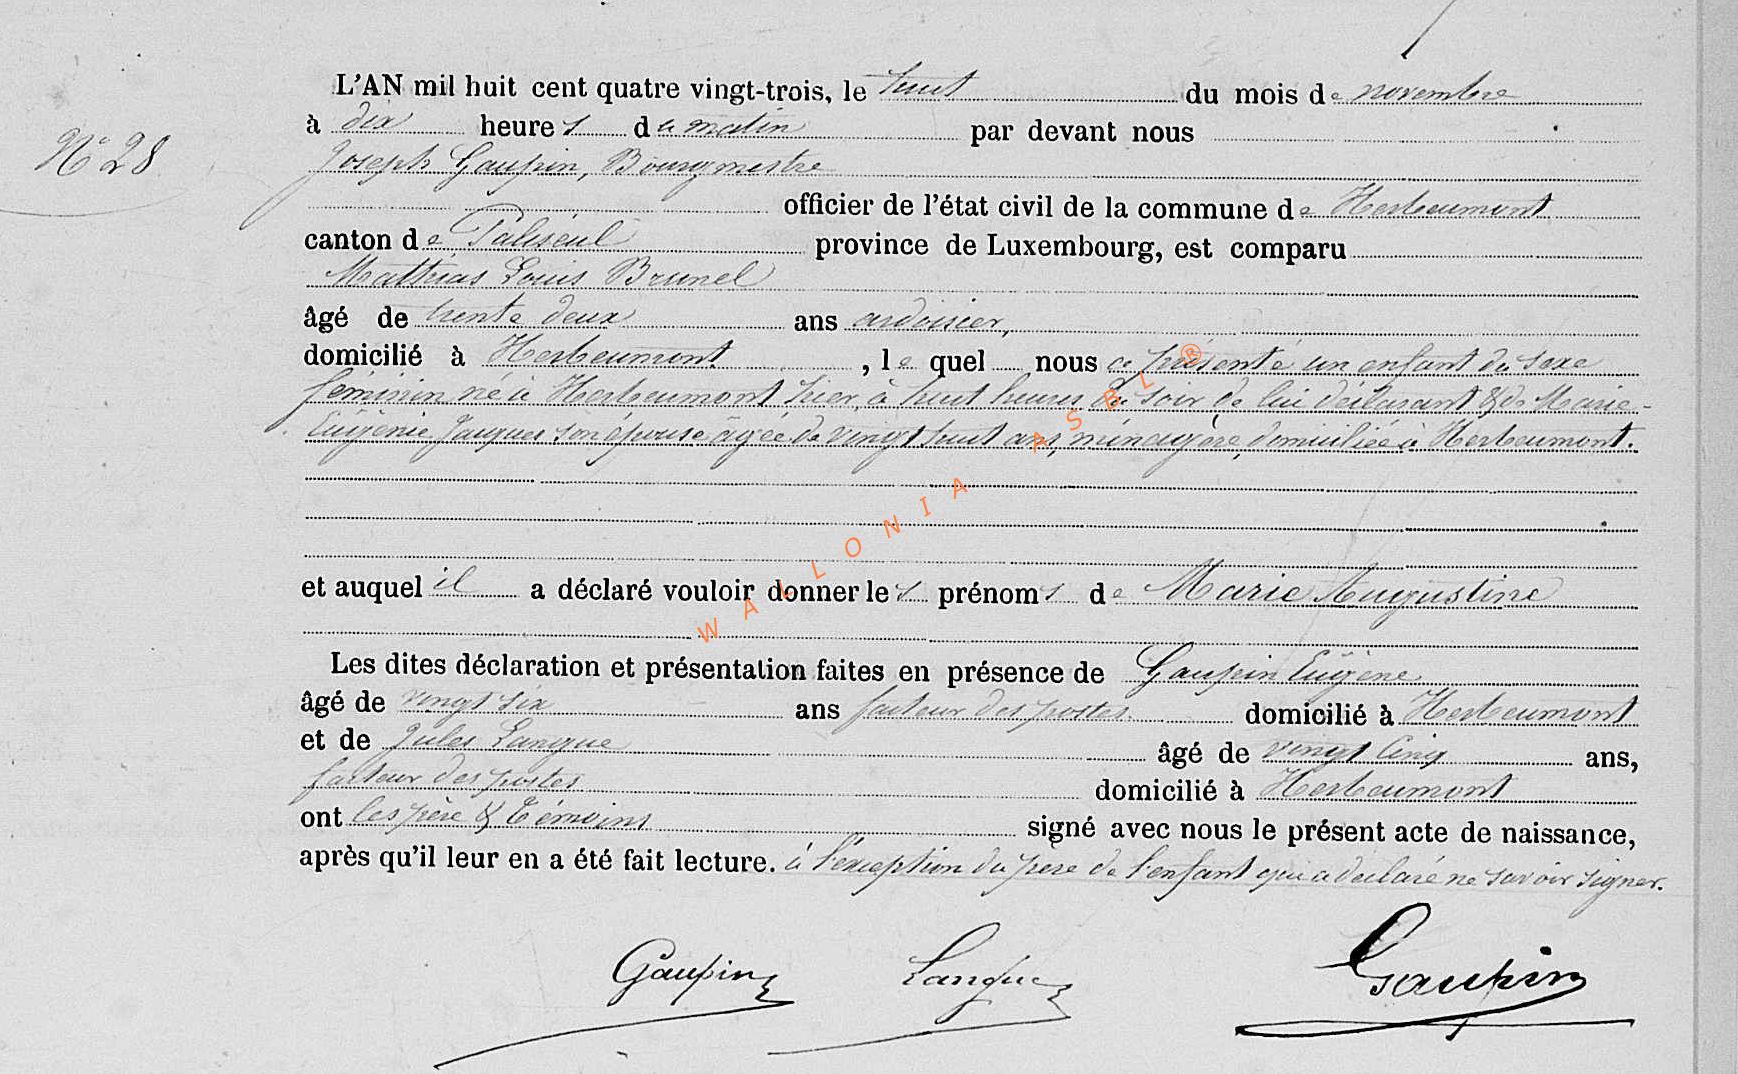 L'AN mil huit cent quatre vingt-trois, le huit du mois de novembre
à dix heures du matin par devant nous
N° 28
Joseph Gaupin, Bourgmestre
officier de l'état civil de la commune de Herbeumont
canton de Paliseul province de Luxembourg, est comparu
Mathias Louis Brunel
âgé de trente deux ans ardoisier,
domicilié à Herbeumont, le quel nous a présenté un enfant du sexe
féminin né à Herbeumont hier, à huit heures du soir de lui déclarant & de Marie-
Eugénie Jacques son épouse âgée de vingt huit ans, ménagère, domiciliée à Herbeumont.
et auquel il a déclaré vouloir donner les prénoms de Marie Augustine
Les dites déclaration et présentation faites en présence de Gaupin Eugène
âgé de vingt six ans facteur des postes domicilié à Herbeumont
et de Jules Langue âgé de vingt cinq ans,
facteur des postes domicilié à Herbeumont
ont les père & témoins signé avec nous le présent acte de naissance,
après qu'il leur en a été fait lecture. à l'exception du père de l'enfant qui a déclaré ne savoir signer.
Gaupin Langue Gaupin
WALLONIA ASBL ®